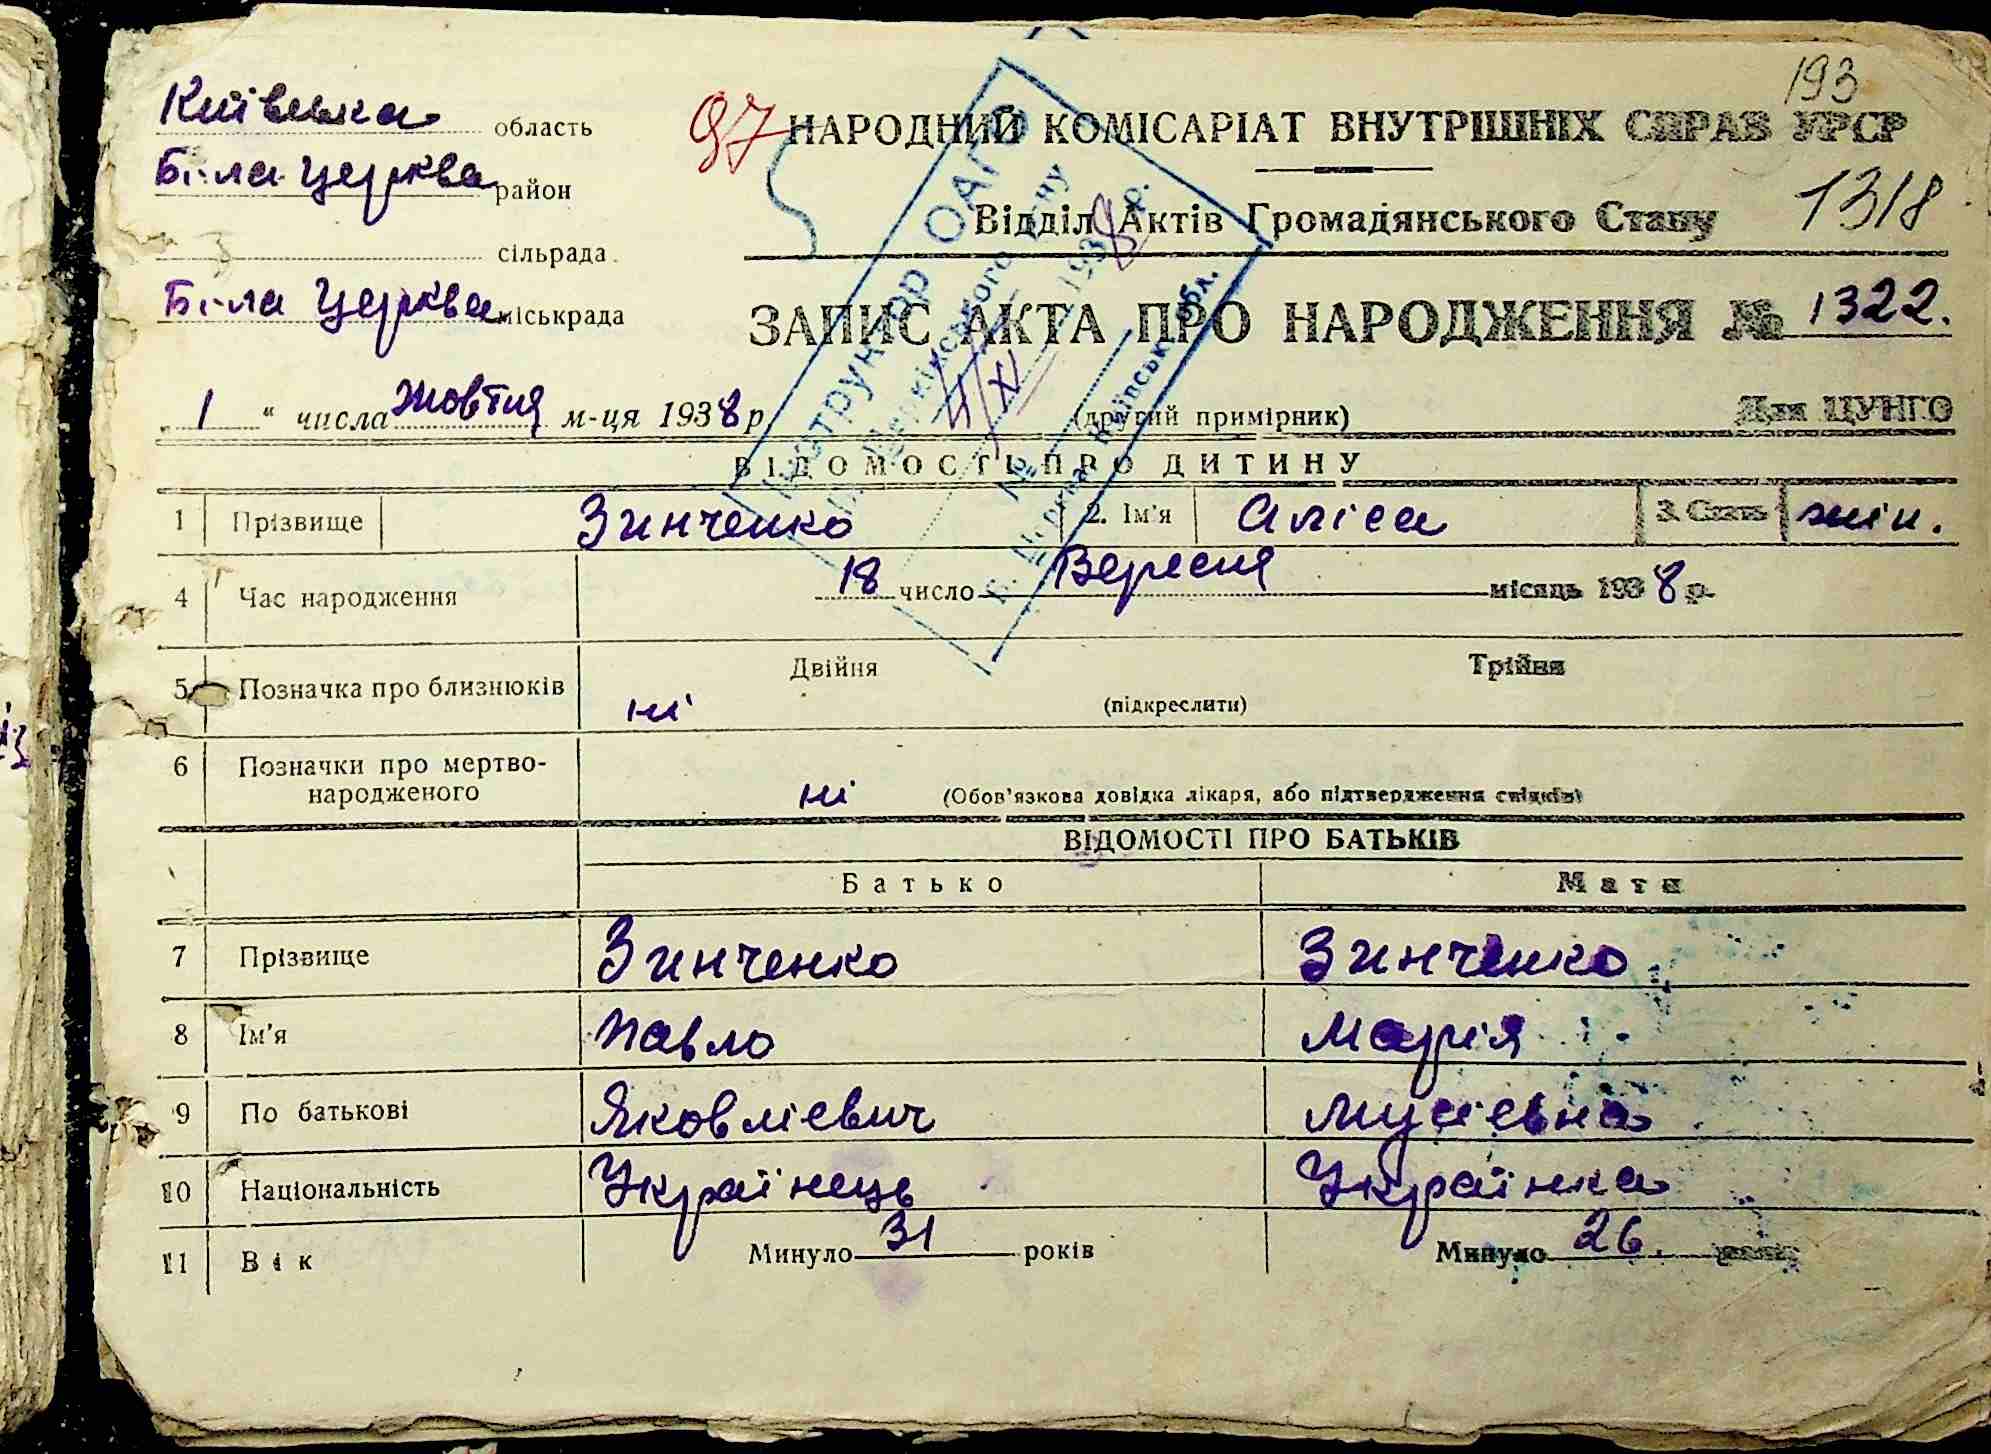 193
Київська область
97 НАРОДНИЙ КОМІСАРІАТ ВНУТРІШНІХ СПРАВ УРСР
Біла Церква район
Відділ Актів Громадянського Стану 1318
сільрада
Біла Церква міськрада
ЗАПИС АКТА ПРО НАРОДЖЕННЯ № 1322.
„ 1 “ числа Жовтня м-ця 1938 р.
(другий примірник) Для ЦУНГО
ВІДОМОСТІ ПРО ДИТИНУ
1 Прізвище Зинченко 2. Ім'я Аліса 3. Стать жін.
4 Час народження 18 число Вересня місяць 1938 р.
5 Позначка про близнюків ні Двійня Трійня
(підкреслити)
6 Позначки про мертво-
народженого ні (Обов'язкова довідка лікаря, або підтвердження свідків)
ВІДОМОСТІ ПРО БАТЬКІВ
Батько Мати
7 Прізвище Зинченко Зинченко
8 Ім'я Павло Марія
9 По батькові Яковлієвич Мусієвна
10 Національність Українець Українка
11 Вік Минуло 31 років Минуло 26. років